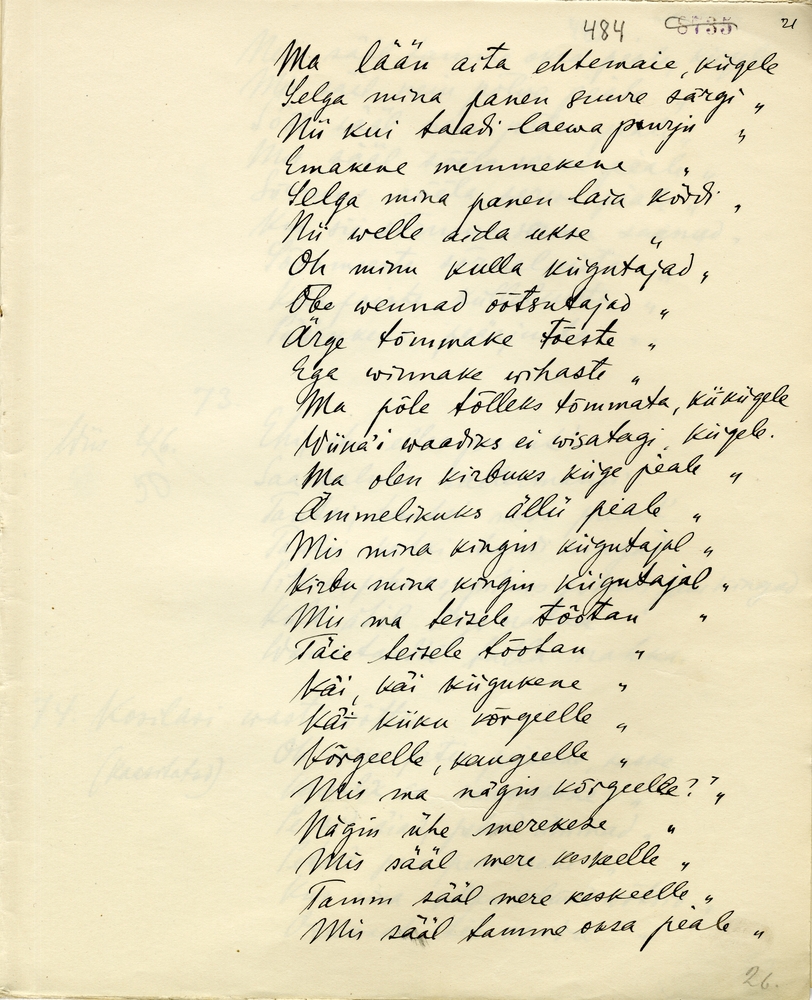 484 8735 21
Ma lään aita ehtemaie, kiigele
Selga mina panen suure särgi "
Nii kui taadi laewa purju "
Emakene memmekene "
Selga mina panen laia kördi "
Nii welle aida ukse "
Oh minu kulla kiigutajad "
Õbe wennad öötsutajad "
Ärge tõmmake tõeste "
Ega winnake wihaste "
Ma põle tölleks tõmmata, kiikiigele
Wiina'i waadiks ei wisatagi, kiigele.
Ma olen kirbuks kiige peale "
Ämmelikuks ällü peale "
Mis mina kingin kiigutajal "
Kirbu mina kingin kiigutajal "
Mis ma teisele tõotan "
Täie teisele tõotan "
Käi, käi kiigukene "
Käi kiiku kõrgeelle "
Kõrgeelle, kaugeelle "
Mis ma nägin kõrgeelle? "
Nägin ühe merekese "
Mis sääl mere keskeelle "
Tamm sääl mere keskeelle "
Mis sääl tamme oksa peale "
26.